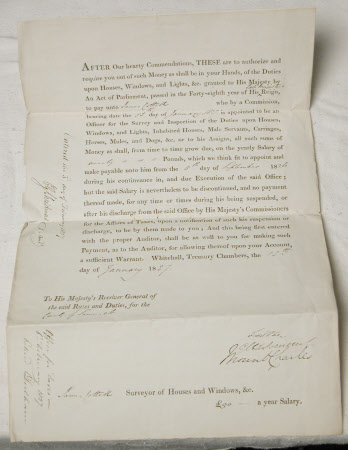 AFTER Our hearty Commendations, THESE are to authorize and
require you out of such Money as shall be in your Hands, of the Duties
upon Houses, Windows, and Lights, &c. granted to His Majesty by
An Act of Parliament, passed in the Forty-eighth year of His Reign,
to pay unto James who by a Commission,
bearing date the day of January is appointed to be an
Officer for the Survey and Inspection of the Duties upon Houses,
Windows, and Lights, Inhabited Houses, Male Servants, Carriages,
Horses, Mules, and Dogs, &c. or to his Assigns, all such sums of
Money as shall, from time to time grow due, on the yearly Salary of
ninety Pounds, which we think fit to appoint and
make payable unto him from the day of September 1826
during his continuance in, and due Execution of the said Office;
but the said Salary is nevertheless to be discontinued, and no payment
thereof made, for any time or times during his being suspended, or
after his discharge from the said Office by His Majesty's Commissioners
for the Affairs of Taxes, upon a notification of such his suspension or
discharge, to be by them made to you; And this being first entered
with the proper Auditor, shall be as well to you for making such
Payment, as to the Auditor, for allowing thereof upon your Account,
a sufficient Warrant. Whitehall, Treasury Chambers, the
day of January 1827
To His Majesty's Receiver General of
the said Rates and Duties, for the
County of
Mount Charles
James Surveyor of Houses and Windows, &c.
£90 a year Salary.